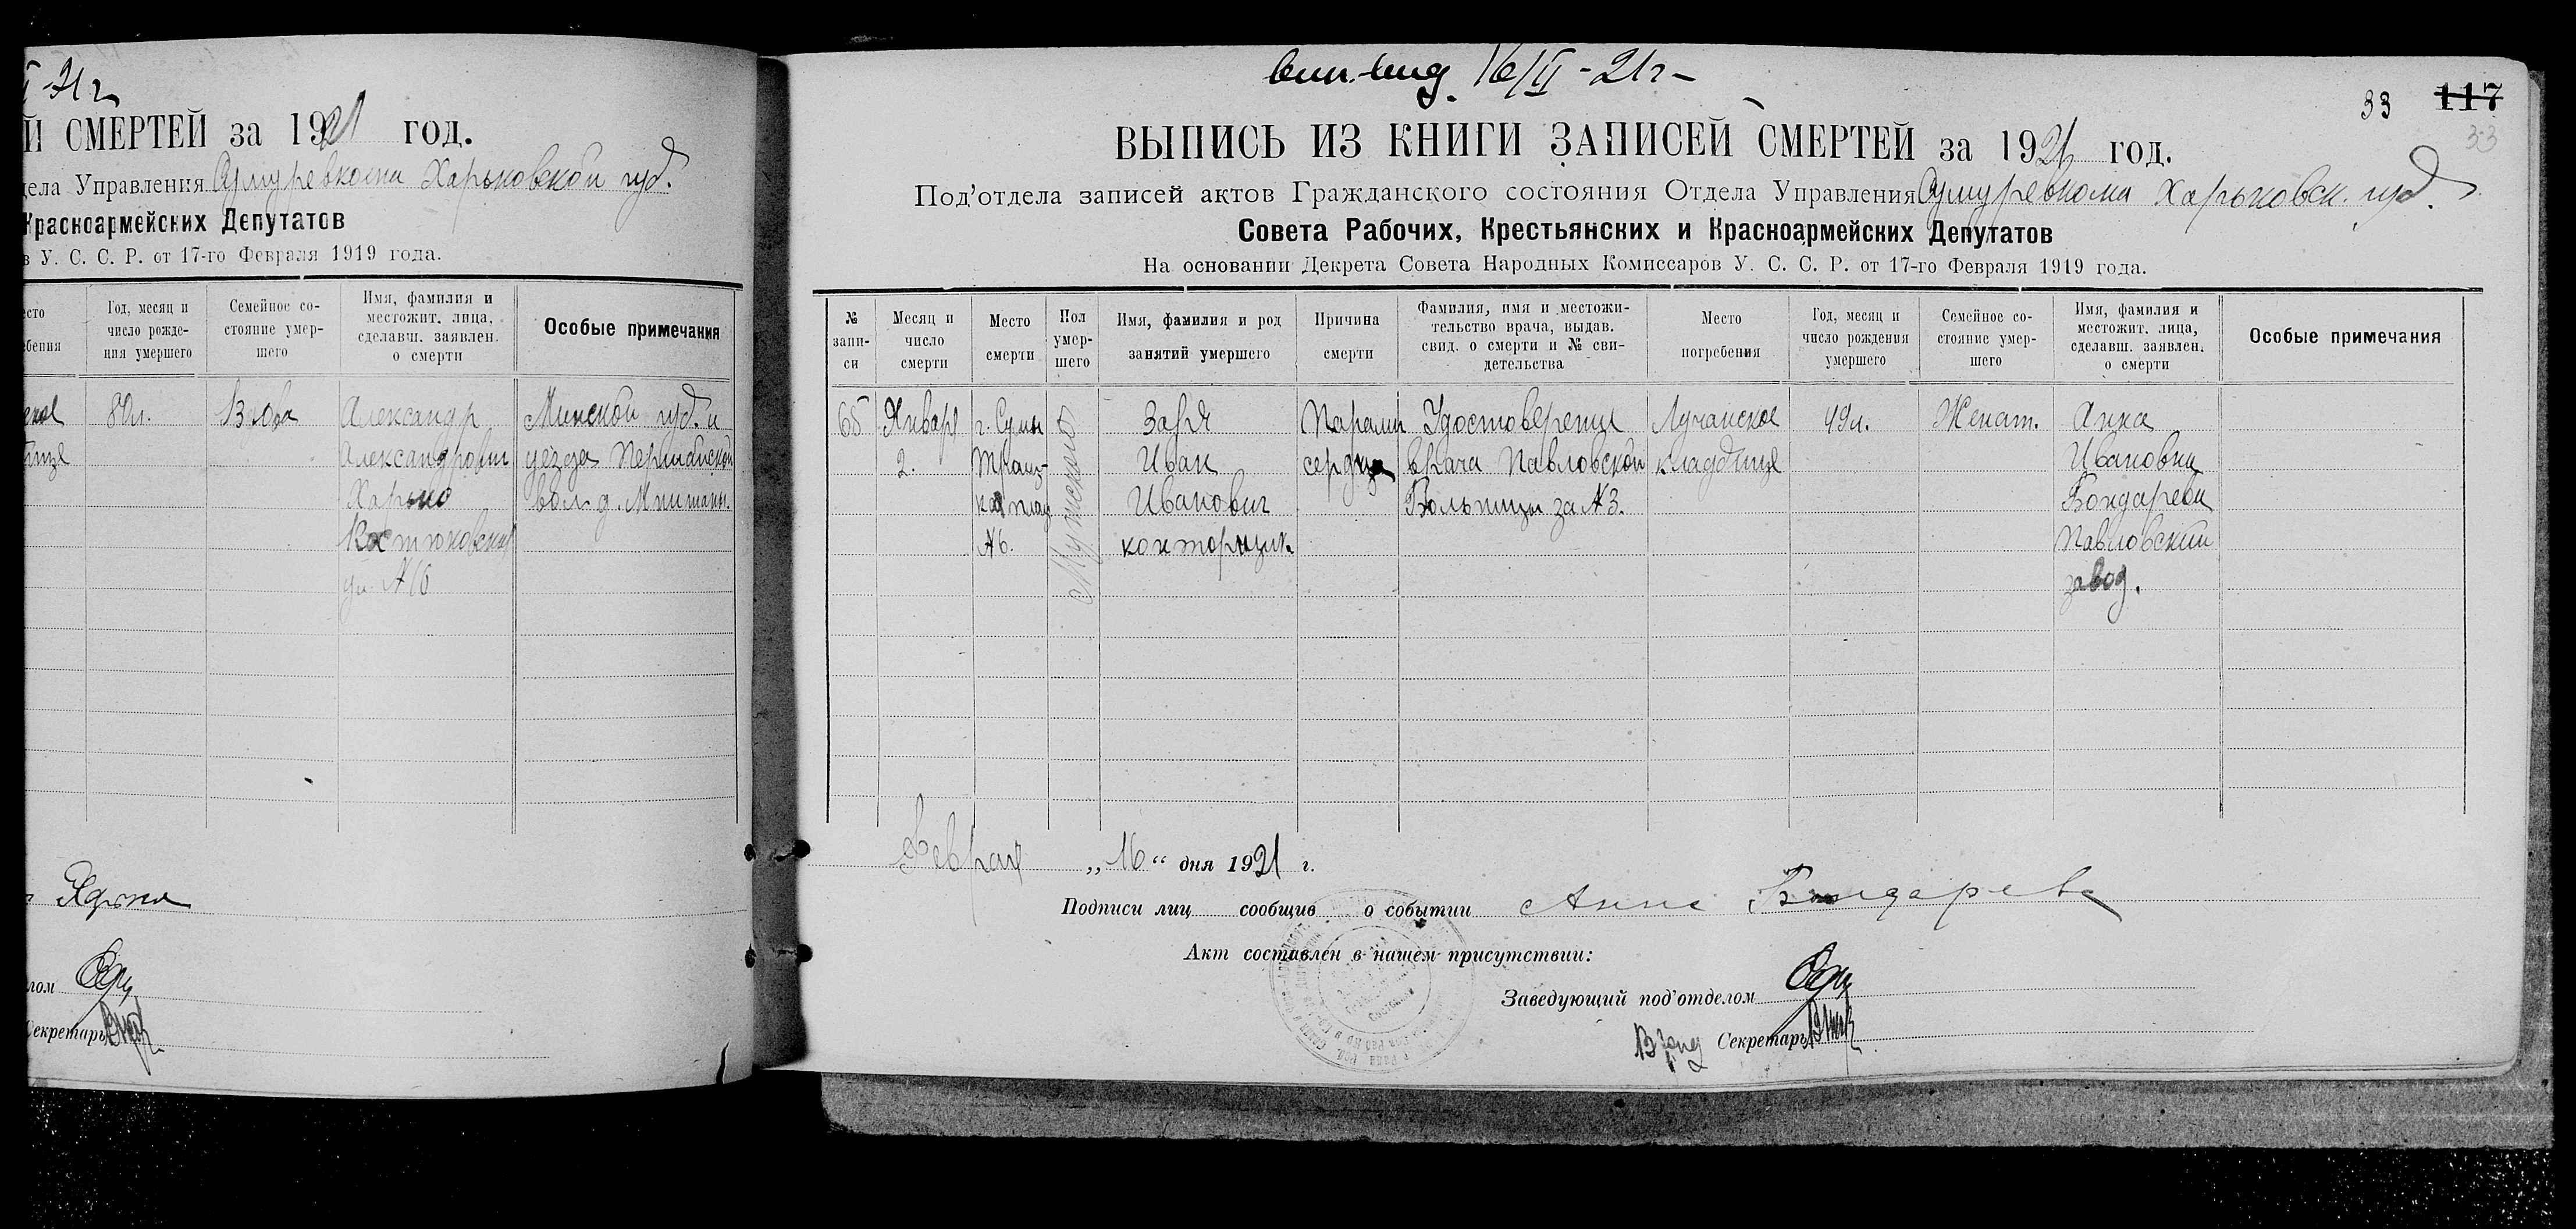 -21 г.
Й СМЕРТЕЙ за 1921 год.
дела Управления Сумуревкома Харьковской губ.
Красноармейских Депутатов
в У. С. С. Р. от 17-го Февраля 1919 года.
Год, месяц и число рождения умершего
Семейное состояние умершего
Имя, фамилия и местожит. лица, сделавш. заявлен. о смерти
Особые примечания
80 л.
Вдова
Александр
Александрович
Харько
ул. №
Минской губ. и
уезда
вол. д.
лом
Секретарь
16/II - 21 г.
33 117
33
ВЫПИСЬ ИЗ КНИГИ ЗАПИСЕЙ СМЕРТЕЙ за 1921 год.
Под'отдела записей актов Гражданского состояния Отдела Управления Сумуревкома Харьковск. губ.
Совета Рабочих, Крестьянских и Красноармейских Депутатов
На основании Декрета Совета Народных Комиссаров У. С. С. Р. от 17-го Февраля 1919 года.
№ запи-си
Месяц и число смерти
Место смерти
Пол умер-шего
Имя, фамилия и род занятий умершего
Причина смерти
Фамилия, имя и местожи-тельство врача, выдав. свид. о смерти и № сви-детельства
Место погребения
Год, месяц и число рождения умершего
Семейное со-стояние умер-шего
Имя, фамилия и местожит. лица, сделавш. заявлен. о смерти
Особые примечания
65
Января
2.
г. Сумы
№ 6.
Мужского
Заря
Иван
Иванович
конторщик
Парали
сердца
Удостоверение
врача Павловской
Больницы за № 3.
Лучанское
кладбище
49 л.
Женат.
Анна
Ивановна
Бондарева
Павловский
завод.
Февраля „16“ дня 1921 г.
Подписи лиц сообщив о событии Анна Бондарева
Акт составлен в нашем присутствии:
Заведующий под'отделом
Секретарь